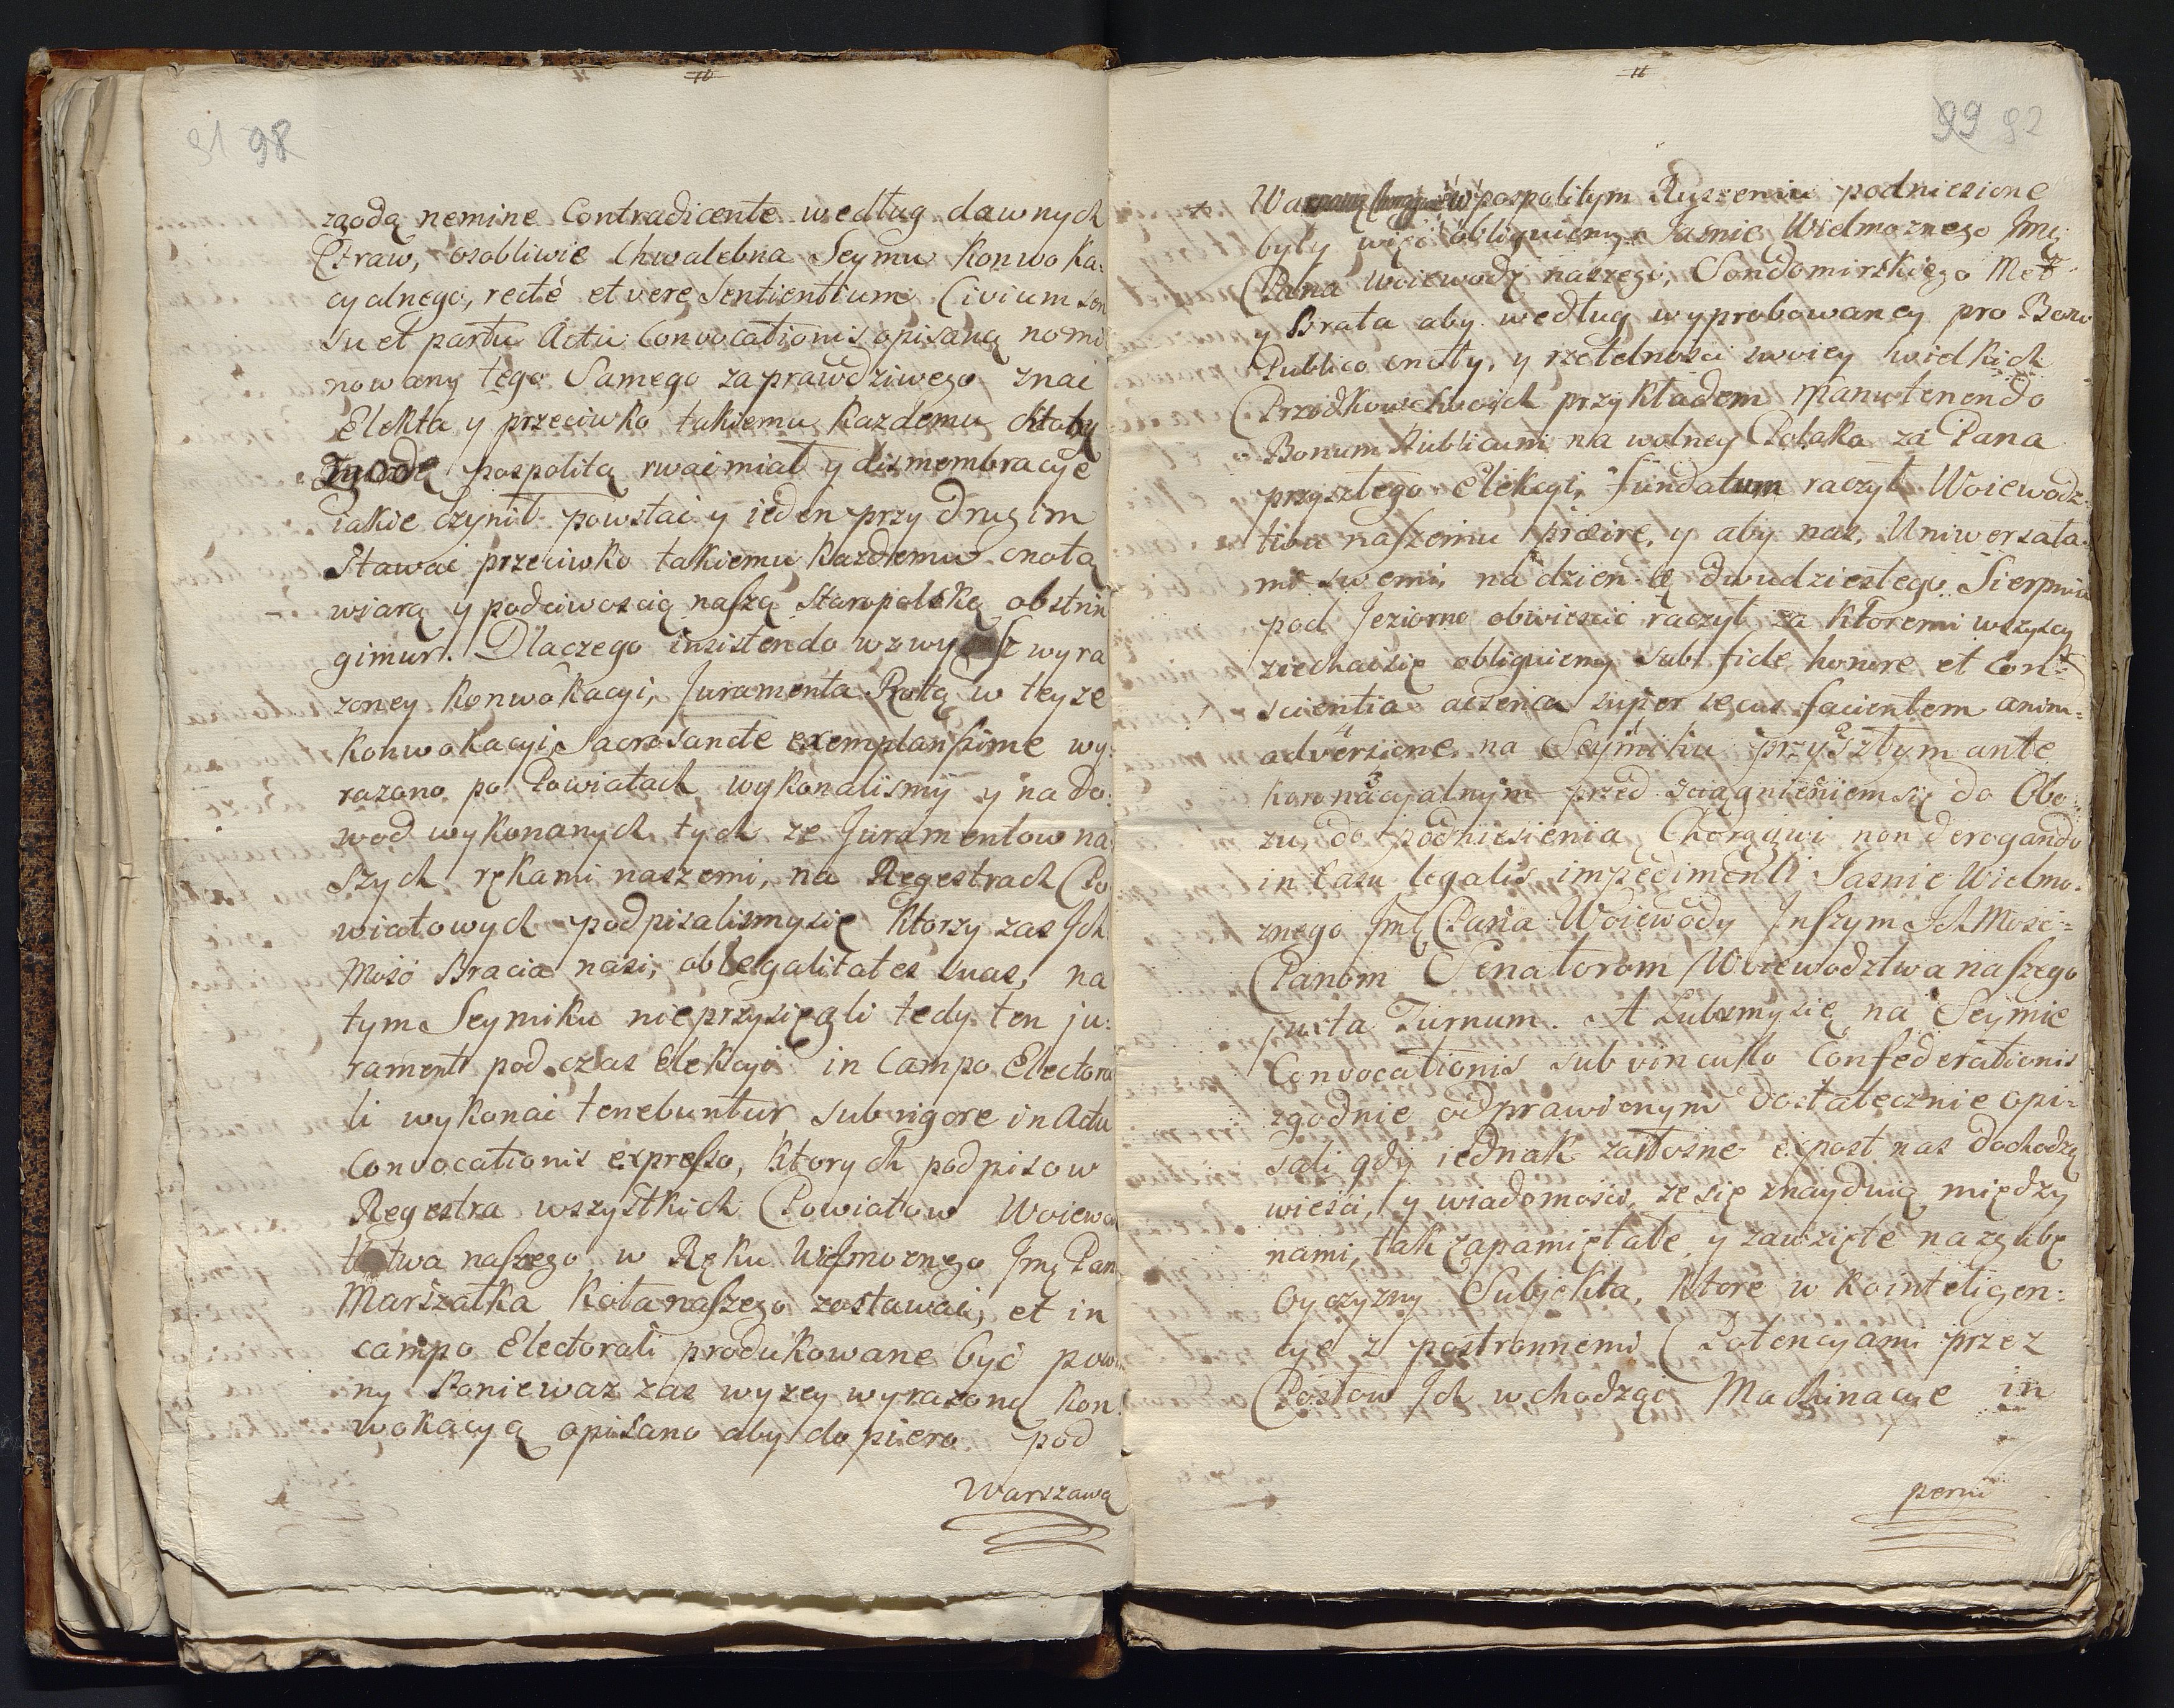 10
91 98
zgodą nemine Contradicente według dawnych
Praw, osobliwie Chwalebna Seymu Konwoka:
cyalnego, recte et vere Sentientium Civium sen
su et partu Actu Convocationis opisaną nomi
nowany tego Samego za prawdziwego znać
Elekta y przeciwko takiemu Kazdemu Ktoby
Zgodę pospolitą rwać miał y dismembracye
iakie czynił powstać y ieden przy drugim
Stawać przeciwko takiemu Kazdemu cnotą
wiarą y podciwoscią naszą Staropolską obstrin
gimur. Dlaczego insistendo wzwysz wyra
zoney Konwokacyi, Juramenta Rotą w teyze
Konwokacyi Sacrosancte exemplarissime wy:
razono po Powiatach wykonalismy y na do:
wod wykonanych tych ze Juramentow na
szych rękami naszemi, na Regestrach Po
wiatowych podpisalismysię Ktorzy zas Jch
Mość Bracia nasi, ob legalitates suas, na
tym Seymiku nieprzysięgli tedy ten ju:
rament pod czas Elekcyi in Campo Electora
li wykonać tenebuntur sub rigore in Actu
Convocationis expresso, Ktorych podpisow
Regestra wszystkich Powiatow Woiewo
dztwa naszego w Ręku Wielmoznego Jmę Pana
Marszałka Koła naszego zostawać, et in
campo Electorali produkowane być powin
ny Poniewaz zas wyzey wyrazoną Kon:
wokacyą opisano aby dopiero pod
Warszawą
11
99 92
War w pospolitym Ruszeniu podniesione
były więc obliguiemy Jasnie Wielmoznego Jmę
Pana Woiewodę naszego, Sendomirskiego Me
y Brata aby według wyprobowaney pro Bono
Publico cnoty, y rzetelności swoiey wielkich
Przodkow swoich przykładem manutenendo
Bonum Publicum na wolney Polaka za Pana
przyszłego Elekcyi, fundatum raczył Woiewodz:
twu naszemu præire, y aby nas, Uniwersała
mi swemi, na dzień dwudziestego Sierpnia
pod Jeziorne obwieścić raczył za Ktoremi wszyscy
ziechać się obliguiemy sub fide honore et Con:
scientia acsenca super secus facientem anim:
adversione na Seymiku przyszłym ante
koronacyalnym przed sciągnieniem się do Obo:
zu, do podniesienia Chorągwi non derogando
in Casu legalis impedimenti Jasnie Wielmo:
znego Jmę Pana Woiewody Jnszym Jch Mość:
Panom Senatorom Woiewodztwa naszego
juxta Turnum. A lubosmysię na Seymie
Convocationis sub vinculo Confederationis
zgodnie odprawionym dostatecznie opi=
sali gdy iednak załosne expost nas dochodzą
wieści, y wiadomości, ze się znayduią między
nami, tak zapamiętałe, y zawzięte na zgubę
Oyczyzny Subjekta, Ktore w Kointeligen:
cye z postronnemi Potencyami przez
Posłow Jch wchodząc Machinacye in
perni